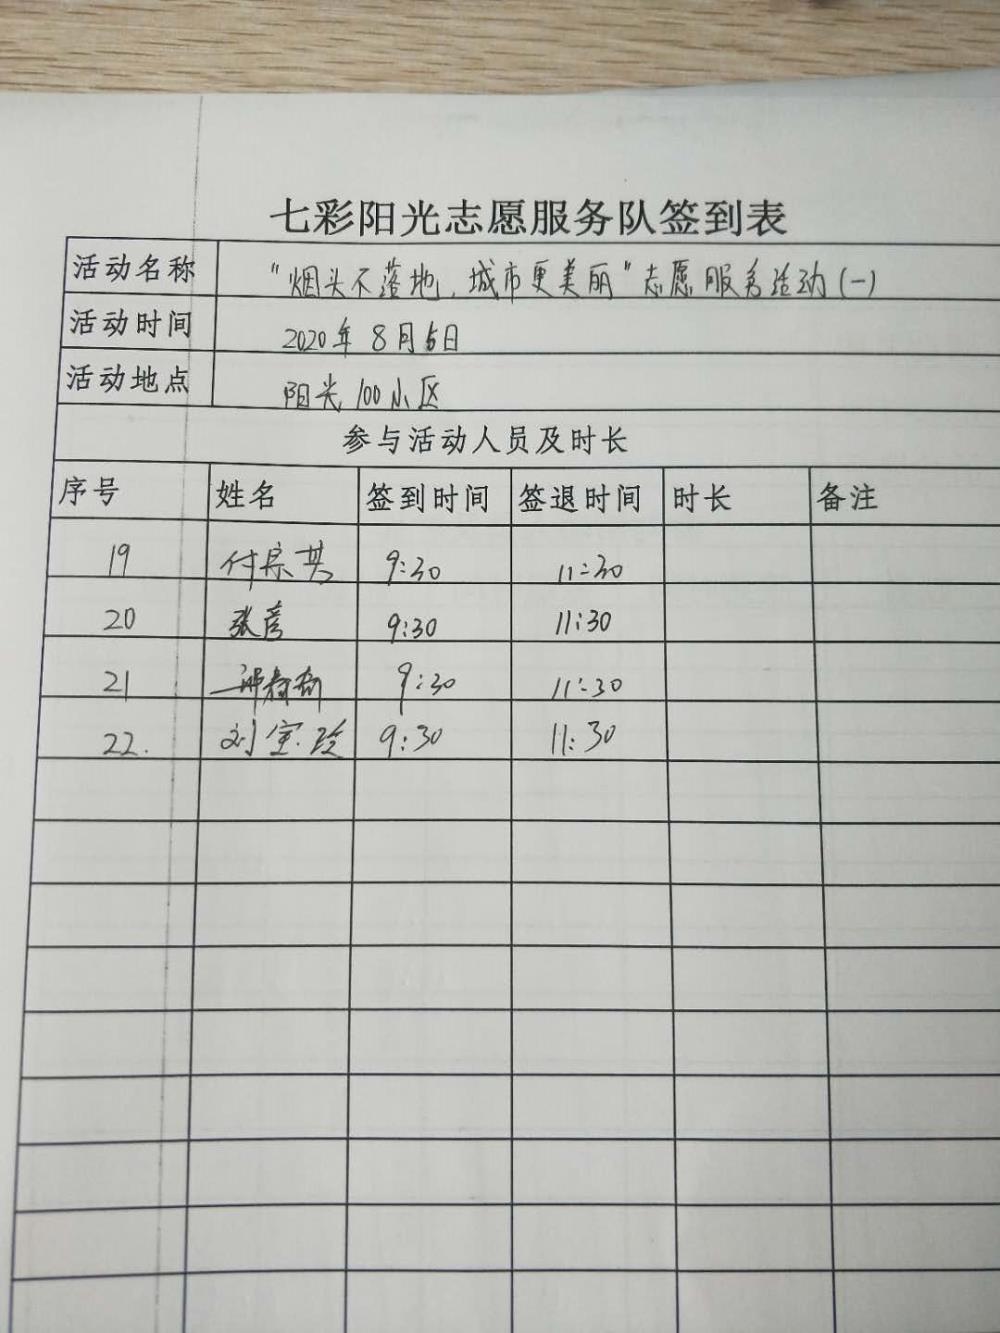 七彩阳光志愿服务队签到表
活动名称 "烟头不落地，城市更美丽"志愿服务活动(一)
活动时间 2020年8月5日
活动地点 阳光100小区
参与活动人员及时长
序号 姓名 签到时间 签退时间 时长 备注
19 付宗其 9:30 11:30
20 张彦 9:30 11:30
21 9:30 11:30
22. 刘宝玲 9:30 11:30